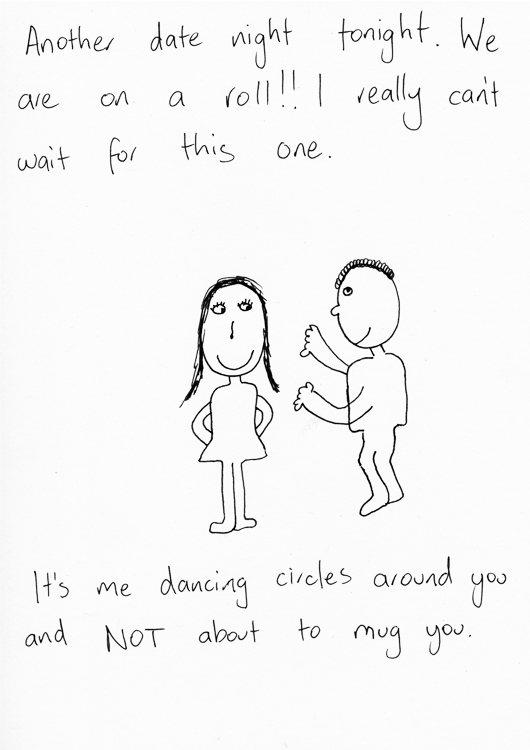 Another date night tonight. We
are on a roll!! I really can't
wait for this one.
It's me dancing circles around you
and NOT about to mug you.